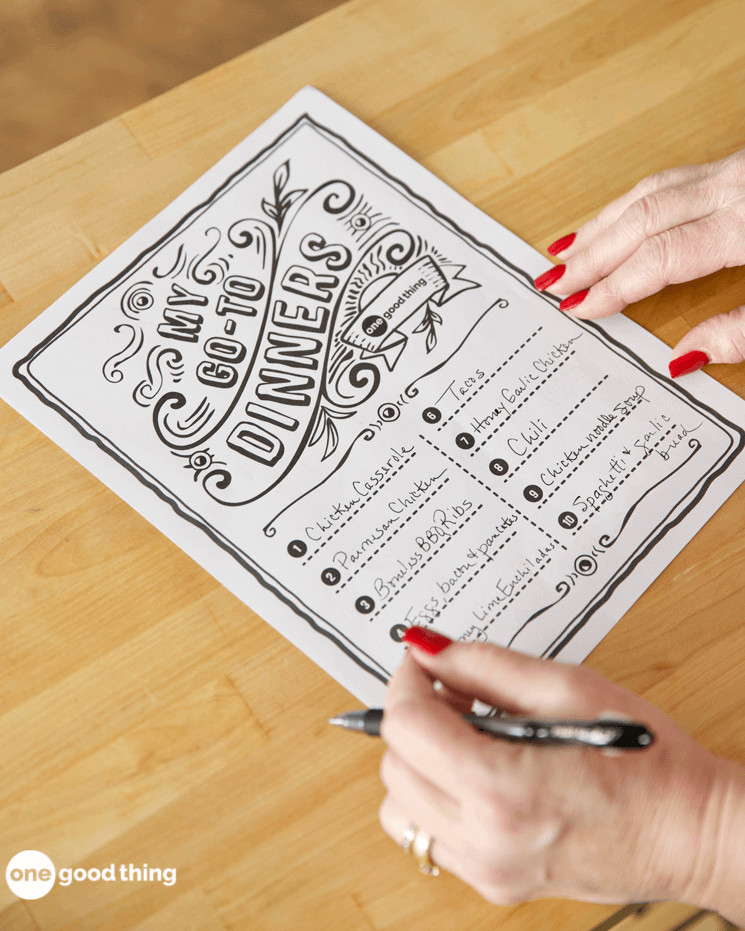 MY
GO-TO
DINNERS
one good thing
1 Chicken Casserole
2 Parmesan Chicken
3 Boneless BBQ Ribs
4 Eggs, bacon & pancakes
Lime Enchiladas
6 Tacos
7 Honey Garlic Chicken
8 Chili
9 Chicken noodle soup
10 Spaghetti & Garlic
bread
one good thing